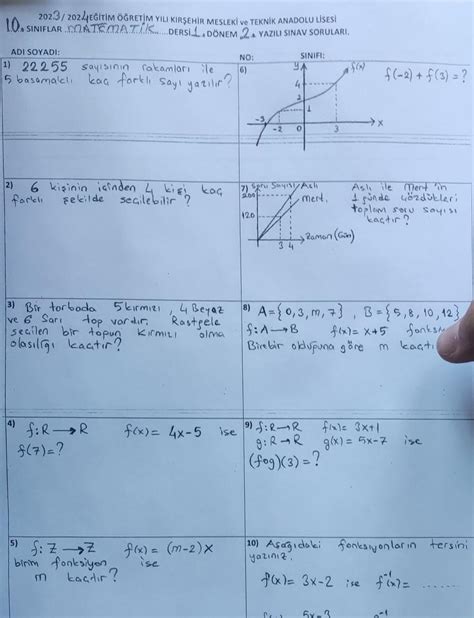 2023/2024 EĞİTİM ÖĞRETİM YILI KIRŞEHİR MESLEKİ ve TEKNİK ANADOLU LİSESİ
10. SINIFLAR MATEMATİK DERSİ 1. DÖNEM 2. YAZILI SINAV SORULARI.
ADI SOYADI: NO: SINIFI:
1) 22255 sayısının rakamları ile
5 basamaklı kaç farklı sayı yazılır?
2) 6 kişinin içinden 4 kişi kaç
farklı şekilde seçilebilir?
3) Bir torbada 5 kırmızı, 4 Beyaz
ve 6 Sarı top vardır. Rastgele
seçilen bir topun kırmızı olma
olasılığı kaçtır?
4) f: R → R f(x) = 4x-5 ise
f(7) = ?
5) f: Z → Z f(x) = (m-2)x
birim fonksiyon ise
m kaçtır?
6) y f(x) f(-2) + f(3) = ?
4
2
1
-3 -2 0 3 x
7) Soru Sayısı Aslı
200 mert
120
3 4 Zaman (Gün)
Aslı ile Mert'in
1 günde çözdükleri
toplam soru sayısı
kaçtır?
8) A = {0, 3, m, 7}, B = {5, 8, 10, 12}
f: A → B f(x) = x+5
Birebir olduğuna göre m
9) f: R → R f(x) = 3x+1
g: R → R g(x) = 5x-7 ise
(fog)(3) = ?
10) Aşağıdaki fonksiyonların tersini
yazınız.
f(x) = 3x-2 ise f⁻¹(x) = .......